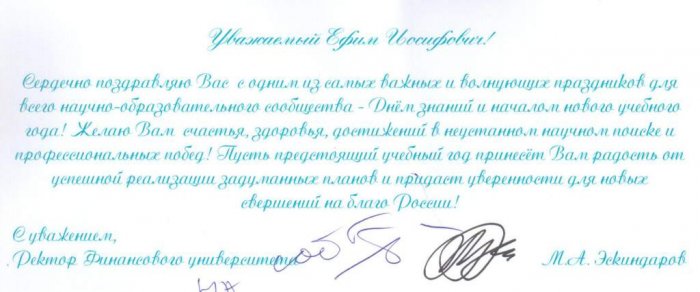 Уважаемый Ефим Иосифович!
Сердечно поздравляю Вас с одним из самых важных и волнующих праздников для
всего научно-образовательного сообщества - Днём знаний и началом нового учебного
года! Желаю Вам счастья, здоровья, достижений в неустанном научном поиске и
профессиональных побед! Пусть предстоящий учебный год принесёт Вам радость от
успешной реализации задуманных планов и придаст уверенности для новых
свершений на благо России!
С уважением,
Ректор Финансового университета М.А. Эскиндаров